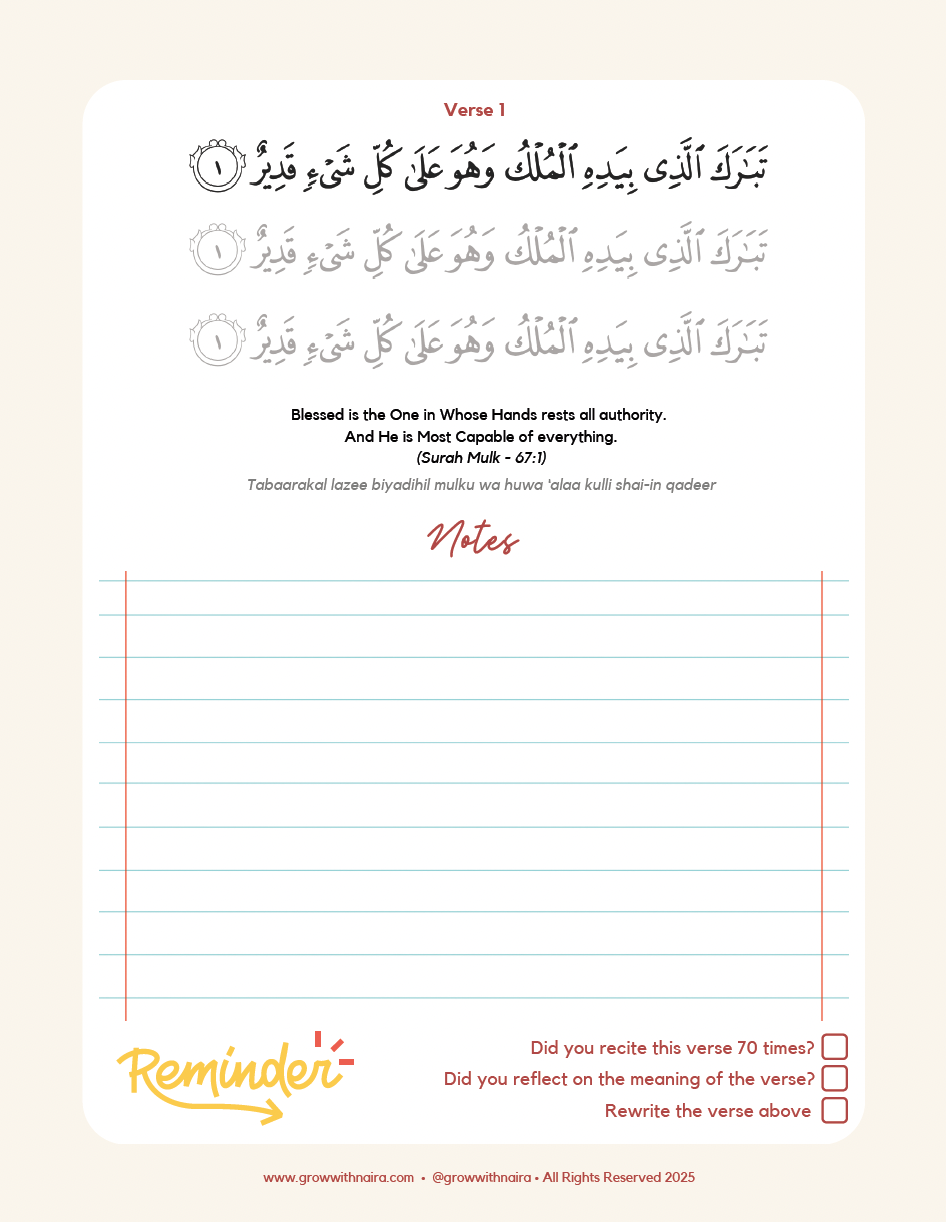 Verse 1
تَبَـٰرَكَ ٱلَّذِى بِيَدِهِ ٱلْمُلْكُ وَهُوَ عَلَىٰ كُلِّ شَىْءٍ قَدِيرٌ ١
تَبَـٰرَكَ ٱلَّذِى بِيَدِهِ ٱلْمُلْكُ وَهُوَ عَلَىٰ كُلِّ شَىْءٍ قَدِيرٌ ١
تَبَـٰرَكَ ٱلَّذِى بِيَدِهِ ٱلْمُلْكُ وَهُوَ عَلَىٰ كُلِّ شَىْءٍ قَدِيرٌ ١
Blessed is the One in Whose Hands rests all authority.
And He is Most Capable of everything.
(Surah Mulk - 67:1)
Tabaarakal lazee biyadihil mulku wa huwa 'alaa kulli shai-in qadeer
Notes
Reminder
Did you recite this verse 70 times?
Did you reflect on the meaning of the verse?
Rewrite the verse above
www.growwithnaira.com • @growwithnaira • All Rights Reserved 2025